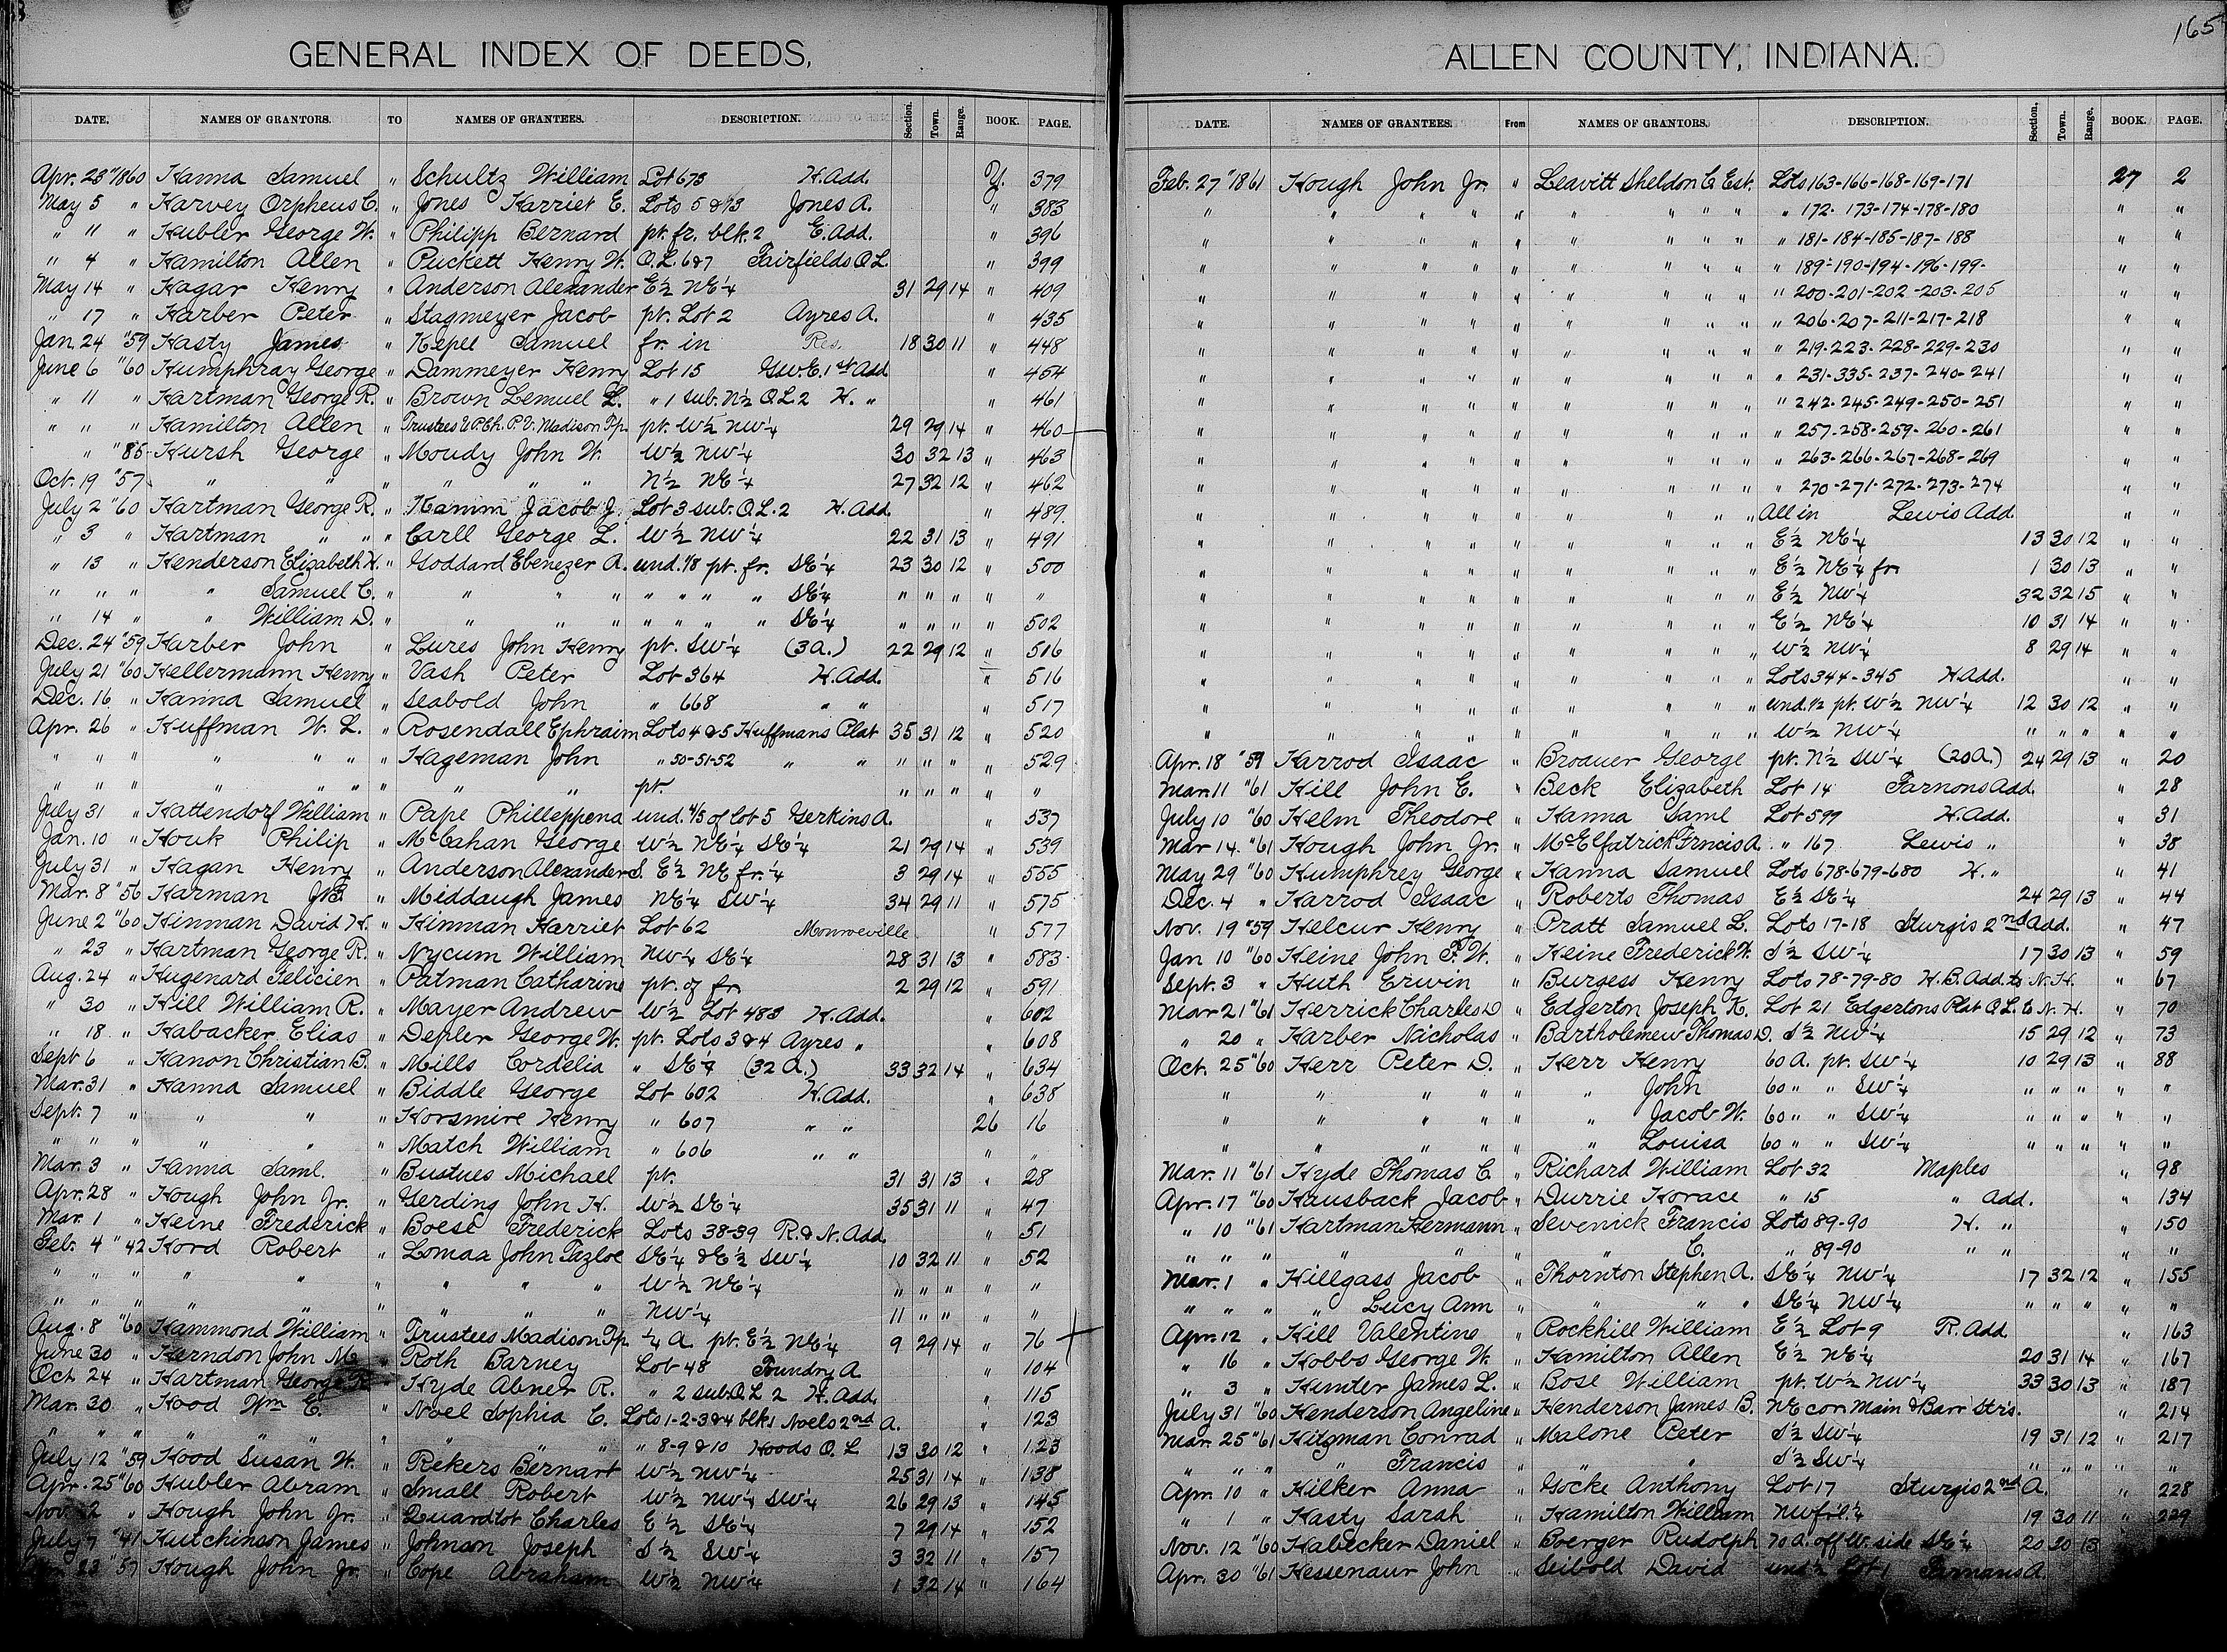 165
GENERAL INDEX OF DEEDS,
DATE. NAMES OF GRANTORS. TO NAMES OF GRANTEES. DESCRIPTION. Section. Town. Range. BOOK. PAGE.
Apr. 23 "1860 Hanna Samuel " Schultz William Lot 673 H. Add. Y. 379
May 5 " Harvey Orpheus C. " Jones Harriet E. Lots 5 & 73 Jones A. " 383
" 11 " Hubler George W. " Philipp Bernard pt. fr. blk. 2 E. Add. " 396
" 4 " Hamilton Allen " Puckett Henry W. O.L. 6&7 Fairfields O.L. " 399
May 14 " Hagar Henry " Anderson Alexander E½ NE¼ 31 29 14 " 409
" 17 " Harber Peter " Stagmeyer Jacob pt. Lot 2 Ayres A. " 435
Jan. 24 "59 Hasty James " Hepel Samuel fr. in Res. 18 30 11 " 448
June 6 "60 Humphray George " Dammeyer Henry Lot 15 G.W.E. 1st Add " 454
" 11 " Hartman George R. " Brown Lemuel L. " 1 sub. N½ O.L. 2 H. " " 461
" " " Hamilton Allen " Trustees U.P.Ch. P.V. Madison Tp. pt. W½ NW¼ 29 29 14 " 460
" "85 Hursh George " Moudy John W. W½ NW¼ 30 32 13 " 463
Oct. 19 "57 " " " " " " N½ NE¼ 27 32 12 " 462
July 2 "60 Hartman George R. " Hamm Jacob J. Lot 3 sub. O.L. 2 H. Add. " 489
" 3 " Hartman " " " Carll George L. W½ NW¼ 22 31 13 " 491
" 13 " Henderson Elizabeth H. " Goddard Ebenezer A. und. 1/8 pt. fr. SE¼ 23 30 12 " 500
" " " " Samuel C. " " " " " " " " SE¼ " " " " "
" 14 " " William D. " " " " " " " " SE¼ " " " " 502
Dec. 24 "59 Harber John " Lures John Henry pt. SW¼ (3a.) 22 29 12 " 516
July 21 "60 Hellermann Henry " Vash Peter Lot 364 H. Add. " 516
Dec. 16 " Hanna Samuel " Seabold John " 668 " " " 517
Apr. 26 " Huffman W. L. " Rosendall Ephraim Lots 4 & 5 Huffmans Plat 35 31 12 " 520
" " " " " " " Hageman John " 50-51-52 " " " " " " 529
" " " " " " " " " pt. " " " " "
July 31 " Hattendorf William " Pape Philleppena und. 4/5 of lot 5 Gerkins A. " 537
Jan. 10 " Houk Philip " McCahan George W½ NE¼ SE¼ 21 29 14 " 539
July 31 " Hagan Henry " Anderson Alexander S. E½ NE fr. ¼ 3 29 14 " 555
Mar. 8 "56 Harman J.B. " Middaugh James NE¼ SW¼ 34 29 11 " 575
June 2 "60 Hinman David H. " Hinman Harriet Lot 62 Monroeville " 577
" 23 " Hartman George R. " Nycum William NW¼ SE¼ 28 31 13 " 583
Aug. 24 " Hugenard Felicien " Patman Catharine pt. of fr. 2 29 12 " 591
" 30 " Hill William R. " Mayer Andrew W½ Lot 483 H. Add. " 602
" 18 " Habacker Elias " Depler George W. pt. Lots 3 & 4 Ayres " " 608
Sept 6 " Hanon Christian B. " Mills Cordelia " SE¼ (32 A.) 33 32 14 " 634
Mar. 31 " Hanna Samuel " Biddle George Lot 602 H. Add. " 638
Sept. 7 " " " " Horsmire Henry " 607 " " 26 16
" " " " " " Match William " 606 " " " "
Mar. 3 " Hanna Saml. " Bustues Michael pt. 31 31 13 " 28
Apr. 28 " Hough John Jr. " Gerding John H. W½ SE¼ 35 31 11 " 47
Mar. 1 " Heine Frederick " Boese Frederick Lots 38-39 R. & N. Add. " 51
Feb. 4 "42 Hord Robert " Lomaa John Tazloe SE¼ & E½ SW¼ 10 32 11 " 52
" " " " " " " " " W½ NE¼ " " " " "
" " " " " " " " " NW¼ 11 " " " "
Aug. 8 "60 Hammond William " Trustees Madison Tp. ¼ A. pt. E½ NE¼ 9 29 14 " 76
June 30 " Herndon John M. " Roth Barney Lot 48 Foundry A. " 104
Oct 24 " Hartman George R. " Hyde Abner R. " 2 sub. O.L. 2 H. Add. " 115
Mar. 30 " Hood Wm E. " Noel Sophia C. Lots 1-2-3&4 blk 1 Noels 2nd A. " 123
" " " " " " " " 8-9 & 10 Hoods O.L. 13 30 12 " 123
July 12 "59 Hood Susan W. " Rekers Bernart W½ NW¼ 25 31 14 " 138
Apr. 25 "60 Hubler Abram " Small Robert W½ NW¼ SW¼ 26 29 13 " 145
Nov. 2 " Hough John Jr. " Quardtot Charles E½ SE¼ 7 29 14 " 152
July 7 "41 Hutchinson James " Johnson Joseph S½ SW¼ 3 32 11 " 157
23 "57 Hough John Jr. " Cope Abraham W½ NW¼ 1 32 14 " 164
ALLEN COUNTY, INDIANA.
DATE. NAMES OF GRANTEES. From NAMES OF GRANTORS. DESCRIPTION. Section. Town. Range. BOOK. PAGE.
Feb. 27 "1861 Hough John Jr. " Leavitt Sheldon C. Est. Lots 163-166-168-169-171 27 2
" " " " " " " " " " 172-173-174-178-180 " "
" " " " " " " " " " 181-184-185-187-188 " "
" " " " " " " " " " 189-190-194-196-199- " "
" " " " " " " " " " 200-201-202-203-205 " "
" " " " " " " " " " 206-207-211-217-218 " "
" " " " " " " " " " 219-223-228-229-230 " "
" " " " " " " " " " 231-335-237-240-241 " "
" " " " " " " " " " 242-245-249-250-251 " "
" " " " " " " " " " 257-258-259-260-261 " "
" " " " " " " " " " 263-266-267-268-269 " "
" " " " " " " " " " 270-271-272-273-274 " "
" " " " " " " " " All in Lewis Add. " "
" " " " " " " " " E½ NE¼ 13 30 12 " "
" " " " " " " " " E½ NE¼ fr 1 30 13 " "
" " " " " " " " " E½ NW¼ 32 32 15 " "
" " " " " " " " " E½ NE¼ 10 31 14 " "
" " " " " " " " " W½ NW¼ 8 29 14 " "
" " " " " " " " " Lots 344-345 H. Add. " "
" " " " " " " " " und. ½ pt. W½ NW¼ 12 30 12 " "
" " " " " " " " " W½ NW¼ " " " " "
Apr. 18 "59 Harrod Isaac " Broauer George pt. N½ SW¼ (20A.) 24 29 13 " 20
Mar. 11 "61 Hill John E. " Beck Elizabeth Lot 14 Farnons Add. " 28
July 10 "60 Helm Theodore " Hanna Saml Lot 599 H. Add. " 31
Mar 14 "61 Hough John Jr. " McElfatrick Frncis A. " 167 Lewis " " 38
May 29 "60 Humphrey George " Hanna Samuel Lots 678-679-680 H. " " 41
Dec. 4 " Harrod Isaac " Roberts Thomas E½ SE¼ 24 29 13 " 44
Nov. 19 "59 Helcur Henry " Pratt Samuel L. Lots 17-18 Sturgis 2nd Add. " 47
Jan 10 "60 Heine John F. W. " Heine Frederick W. S½ SW¼ 17 30 13 " 59
Sept. 3 " Huth Erwin " Burgess Henry Lots 78-79-80 H.B. Add. to N.H. " 67
Mar 21 "61 Herrick Charles D " Edgerton Joseph K. Lot 21 Edgertons Plat O.L. to N.H. " 70
" 20 " Harber Nicholas " Bartholemew Thomas D. S½ NW¼ 15 29 12 " 73
Oct. 25 "60 Herr Peter D. " Herr Henry 60 A. pt. SW¼ 10 29 13 " 88
" " " " " " John 60 " " SW¼ " " " " "
" " " " " " Jacob W. 60 " " SW¼ " " " " "
" " " " " " Louisa 60 " " SW¼ " " " " "
Mar. 11 "61 Hyde Thomas C. " Richard William Lot 32 Maples " 98
Apr. 17 "60 Hausback Jacob " Durrie Horace " 15 " Add. " 134
" 10 "61 Hartman Hermann " Sevenick Francis Lots 89-90 H. " " 150
" " " " " " " C. " 89-90 " " " "
Mar. 1 " Hillgass Jacob " Thornton Stephen A. SE¼ NW¼ 17 32 12 " 155
" " " " Lucy Ann " " " " SE¼ NW¼ " " " " "
Apr. 12 " Hill Valentine " Rockhill William E½ Lot 9 R. Add " 163
" 16 " Hobbs George W. " Hamilton Allen E½ NE¼ 20 31 14 " 167
" 3 " Hunter James L. " Bose William pt. W½ NW¼ 33 30 13 " 187
July 31 "60 Henderson Angeline " Henderson James B. NE cor Main & Barr Strs. " 214
Mar. 25 "61 Hitzman Conrad " Malone Peter S½ SW¼ 19 31 12 " 217
" " " " Francis " " " S½ SW¼ " " " " "
Apr. 10 " Hilker Anna " Gocke Anthony Lot 17 Sturgis 2nd A. " 228
" 1 " Hasty Sarah " Hamilton William NW frl. ¼ 19 30 11 " 229
Nov. 12 "60 Habecker Daniel " Boerger Rudolph 70 A. off W. side SE¼ 20 30 13
Apr. 30 "61 Hessenaur John " Seibold David und ½ Lot 1 Farnans A.